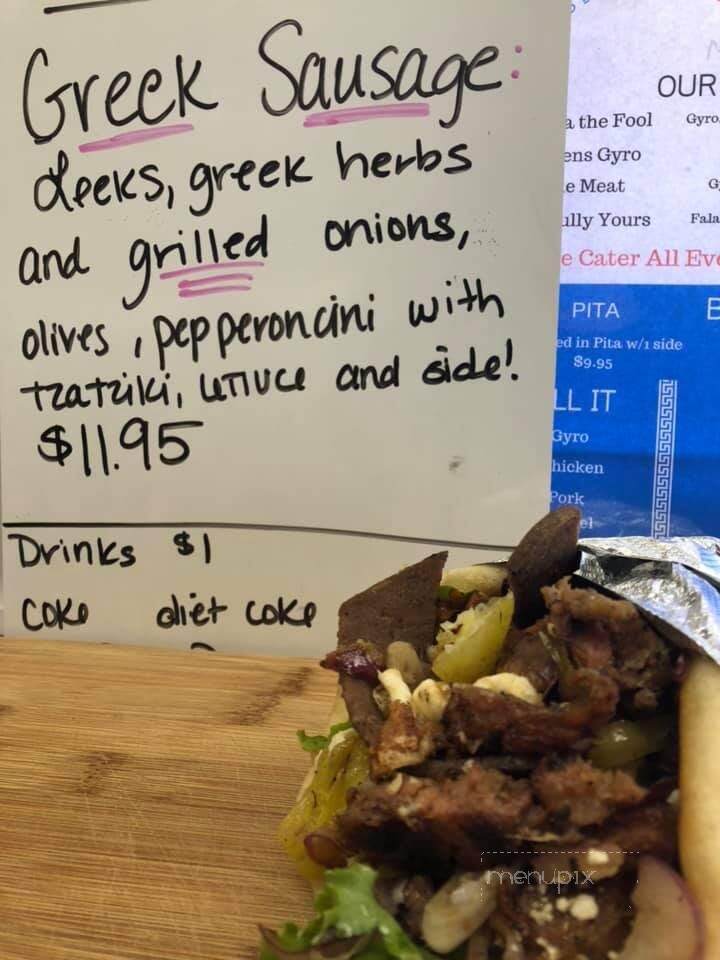 Greek Sausage:
Leeks, greek herbs
and grilled onions,
olives, pepperoncini with
tzatziki, lettuce and side!
$11.95
Drinks $1
Coke diet coke
OUR
a the Fool Gyro
ens Gyro
e Meat G
ully Yours Fala
e Cater All Eve
PITA B
ed in Pita w/1 side
$9.95
LL IT
Gyro
hicken
Pork
el
menupix